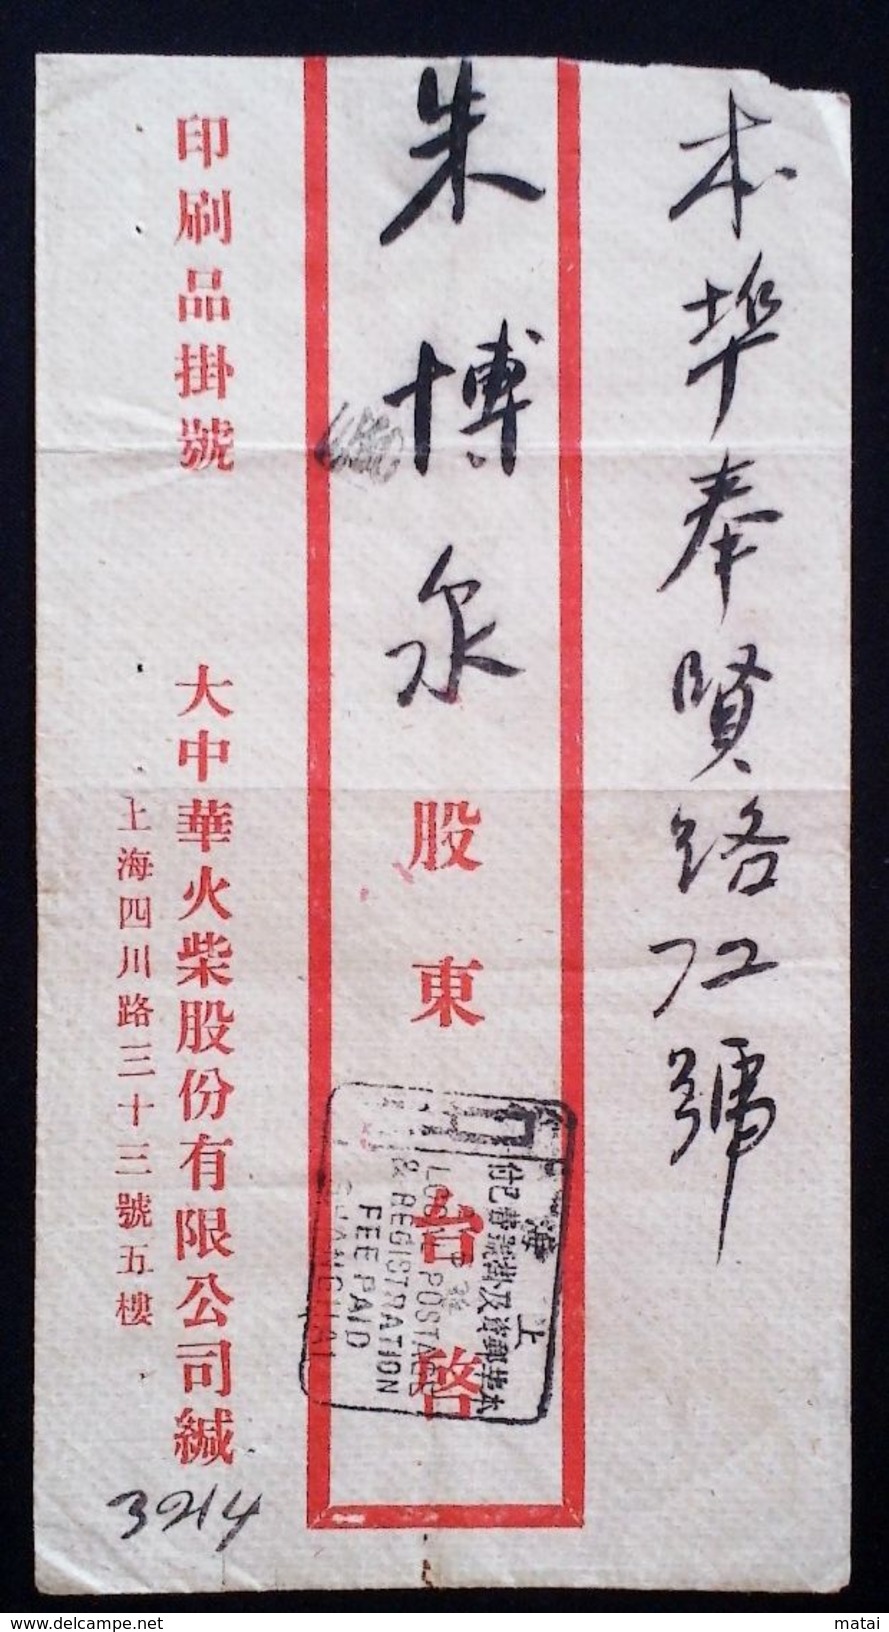 本埠奉賢路72號
朱博泉股東台啓
印刷品掛號
大中華火柴股份有限公司緘
上海四川路三十三號五樓
3214
上海
本埠郵資及掛號費已付
LOCAL POSTAGE
& REGISTRATION
FEE PAID
SHANGHAI
delcampe.net
matai